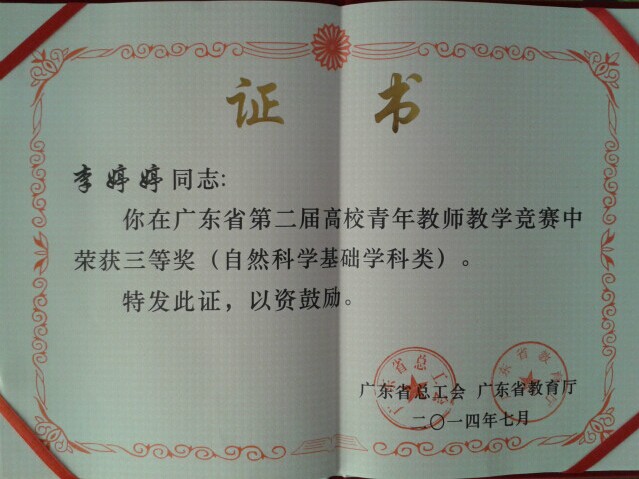 证 书
李婷婷同志:
你在广东省第二届高校青年教师教学竞赛中
荣获三等奖（自然科学基础学科类）。
特发此证，以资鼓励。
广东省总工会 广东省教育厅
二〇一四年七月
广东省总工会
广东省教育厅